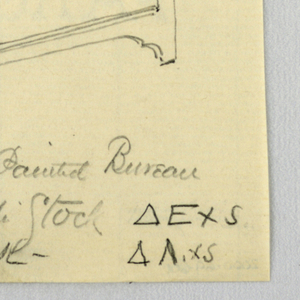 Painted Bureau
Stock Δ E X S
Δ Λ. X S